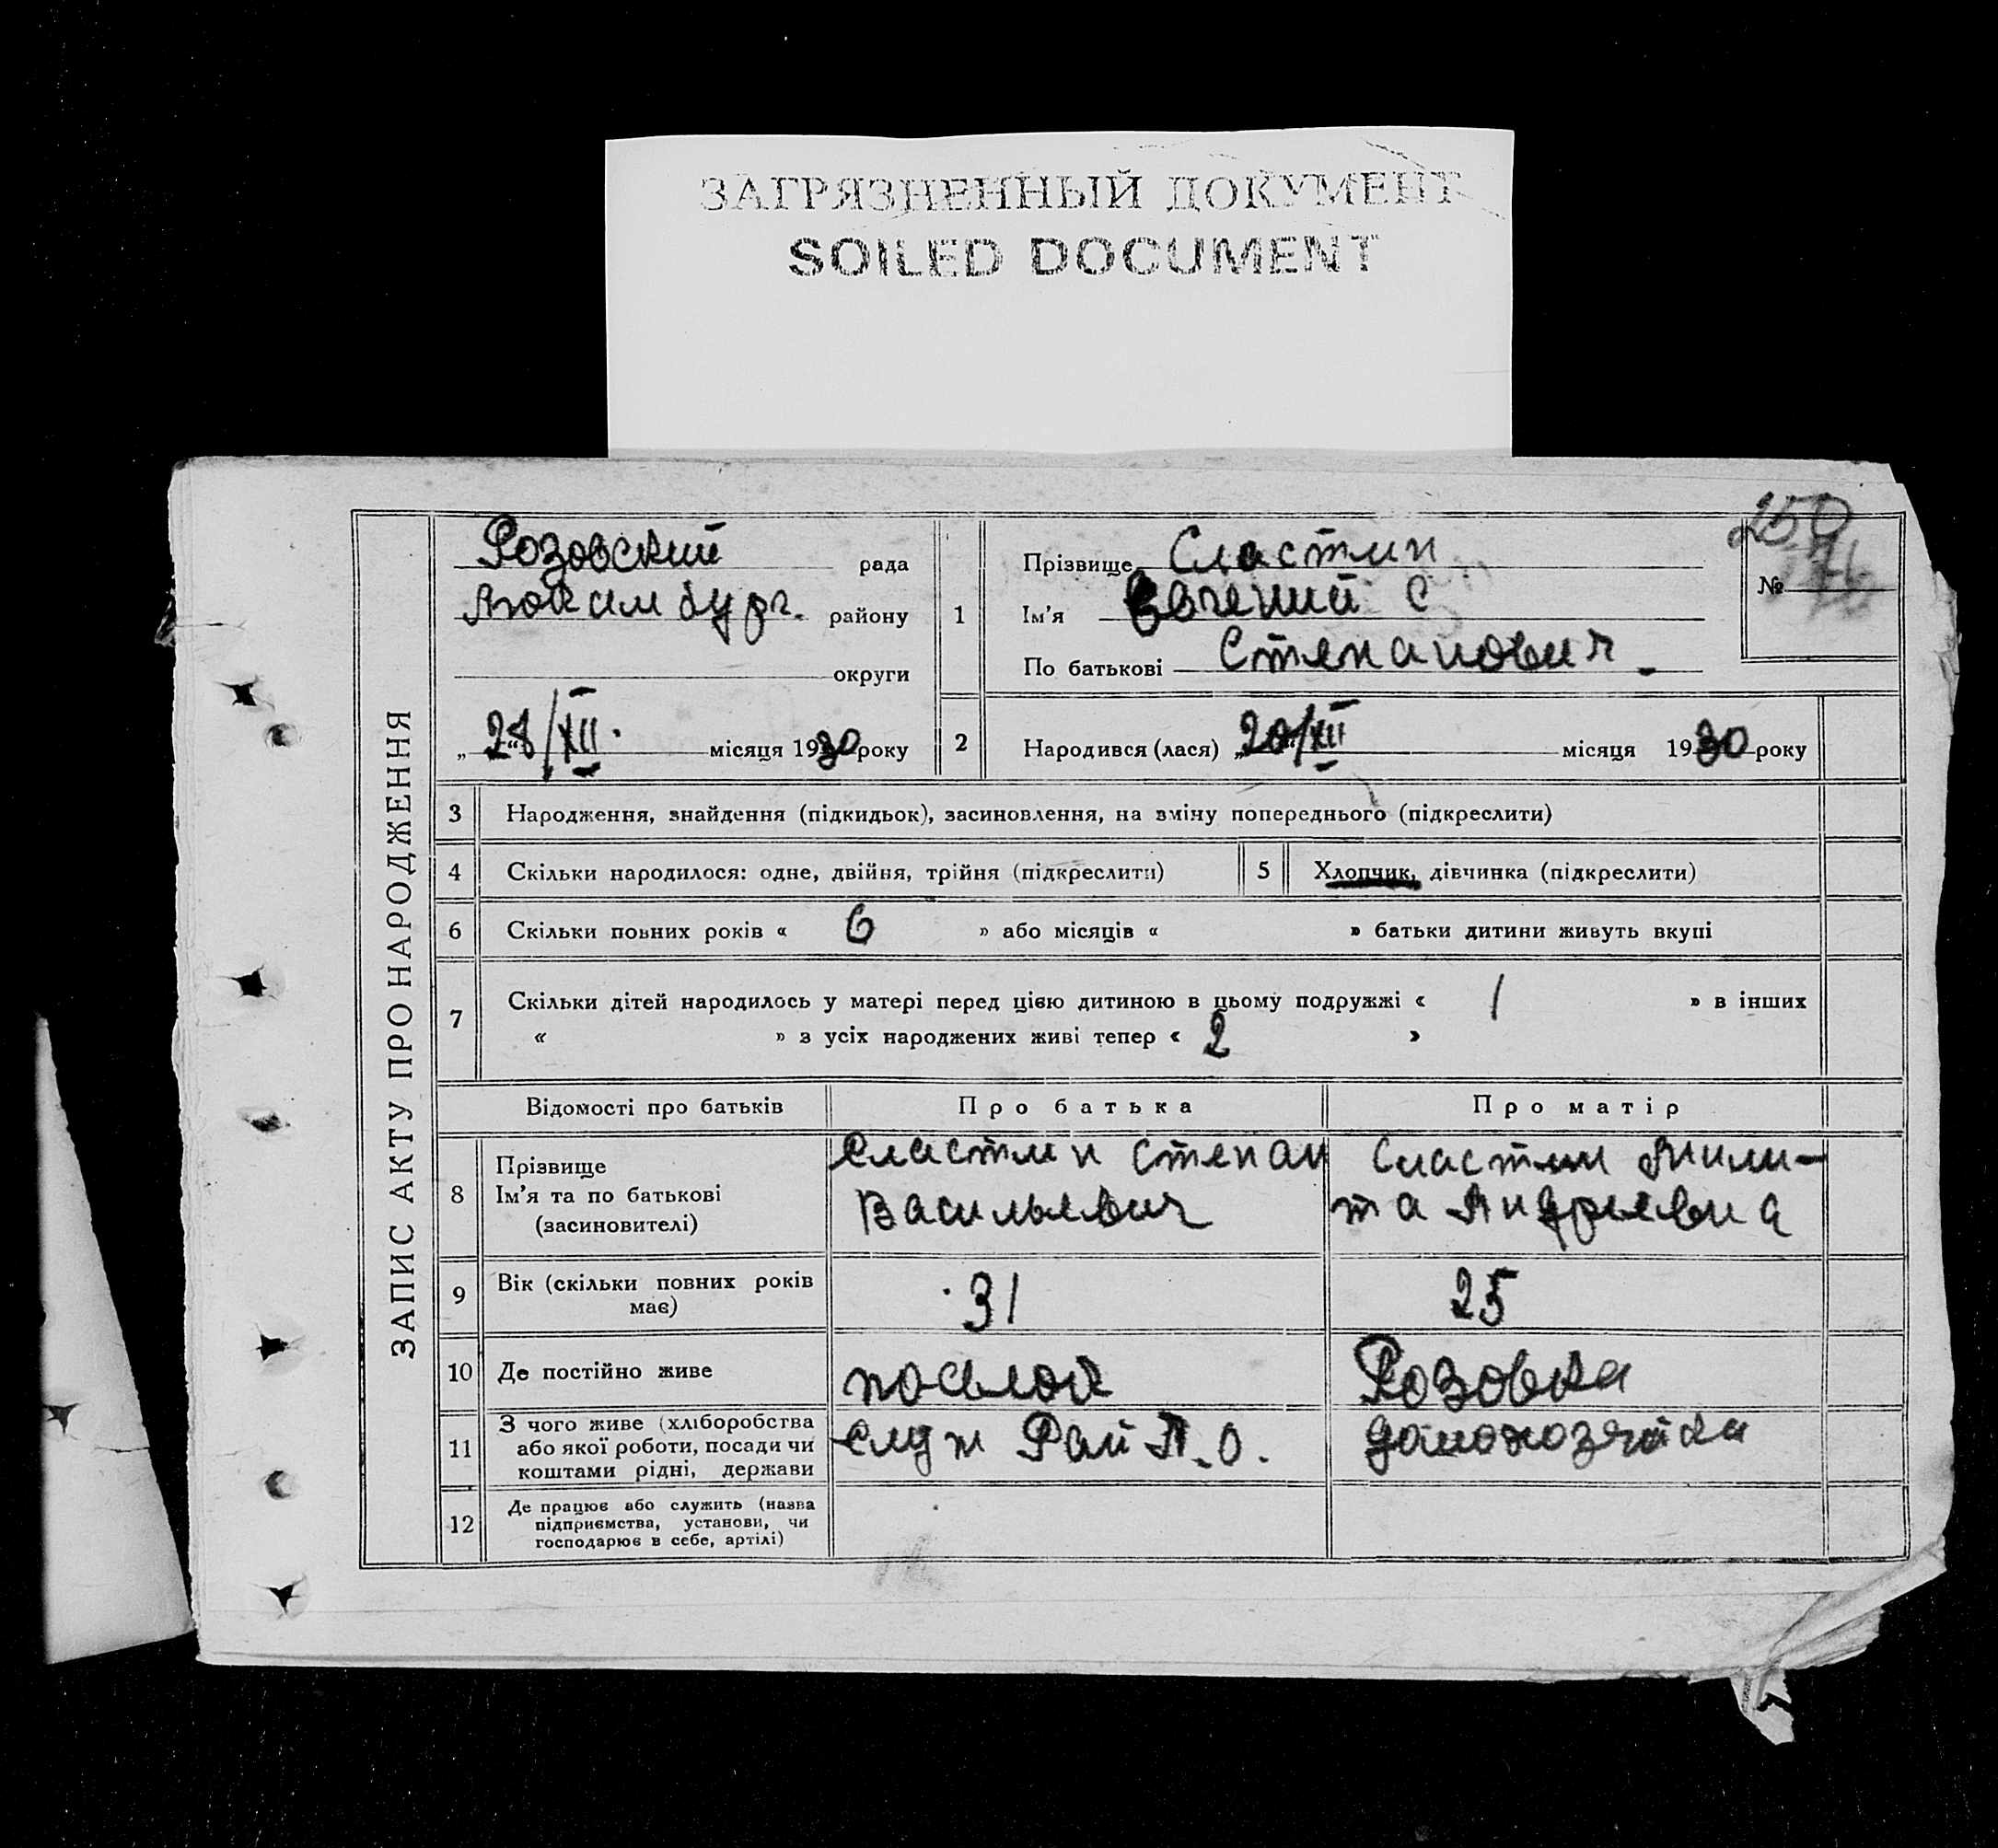 ЗАГРЯЗНЕННЫЙ ДОКУМЕНТ
SOILED DOCUMENT
ЗАПИС АКТУ ПРО НАРОДЖЕННЯ
Розовский рада
Люксембург. району
округи
„28/XII. місяця 1930 року
1
Прізвище Сластин
Ім'я Евгений С
По батькові Степанович
250
№
2
Народився (лася) „20/XII місяця 1930 року
3 Народження, знайдення (підкидьок), засиновлення, на зміну попереднього (підкреслити)
4 Скільки народилося: одне, двійня, трійня (підкреслити)
5 Хлопчик, дівчинка (підкреслити)
6 Скільки повних років « 6 » або місяців « » батьки дитини живуть вкупі
7 Скільки дітей народилось у матері перед цією дитиною в цьому подружжі « 1 » в інших
« » з усіх народжених живі тепер « 2 »
Відомості про батьків Про батька Про матір
8 Прізвище
Ім'я та по батькові
(засиновителі)
Сластин Степан
Васильевич
Сластин
та Андреевна
9 Вік (скільки повних років
має)
31
25
10 Де постійно живе
Розовка
11 З чого живе (хліборобства
або якої роботи, посади чи
коштами рідні, держави
служ Рай П.О.
домохозяйка
12 Де працює або служить (назва
підприємства, установи, чи
господарює в себе, артілі)